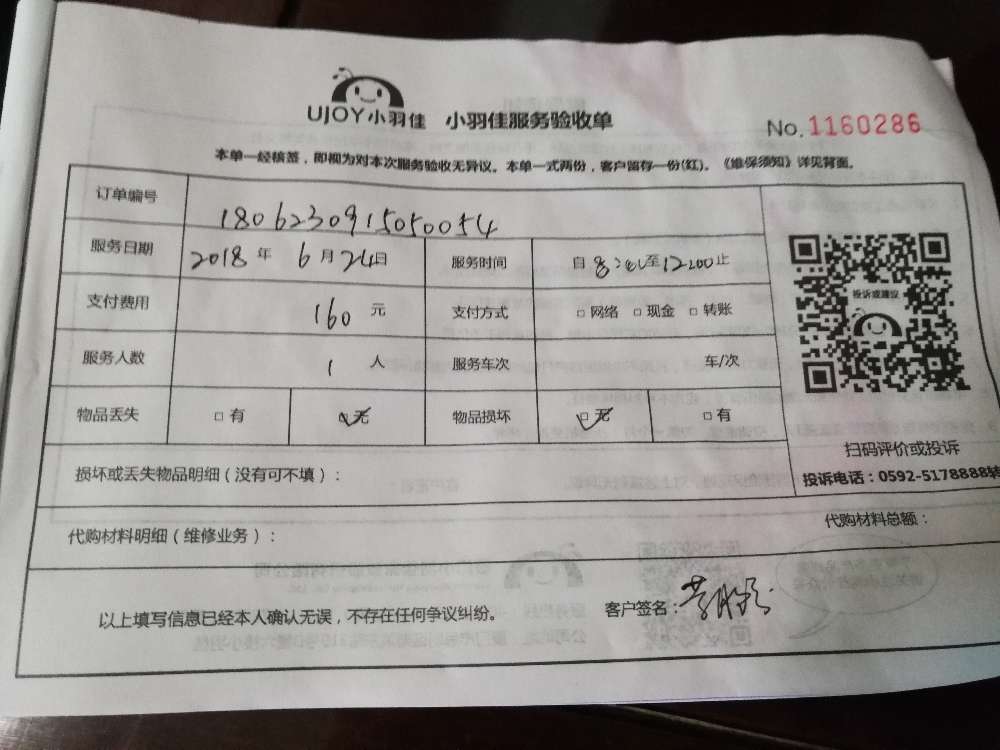 UJOY小羽佳 小羽佳服务验收单
No. 1160286
本单一经核签，即视为对本次服务验收无异议。本单一式两份，客户留存一份(红)。《维保须知》详见背面。
订单编号 1806230915050054
服务日期 2018 年 6 月 24 日 服务时间 自 至 12:00 止
支付费用 160 元 支付方式 □ 网络 □ 现金 □ 转账
服务人数 1 人 服务车次 车/次
投诉或建议
物品丢失 □ 有 □ 无 物品损坏 □ 无 □ 有
扫码评价或投诉
损坏或丢失物品明细（没有可不填）：
投诉电话：0592-5178888转
代购材料明细（维修业务）： 代购材料总额：
以上填写信息已经本人确认无误，不存在任何争议纠纷。 客户签名：